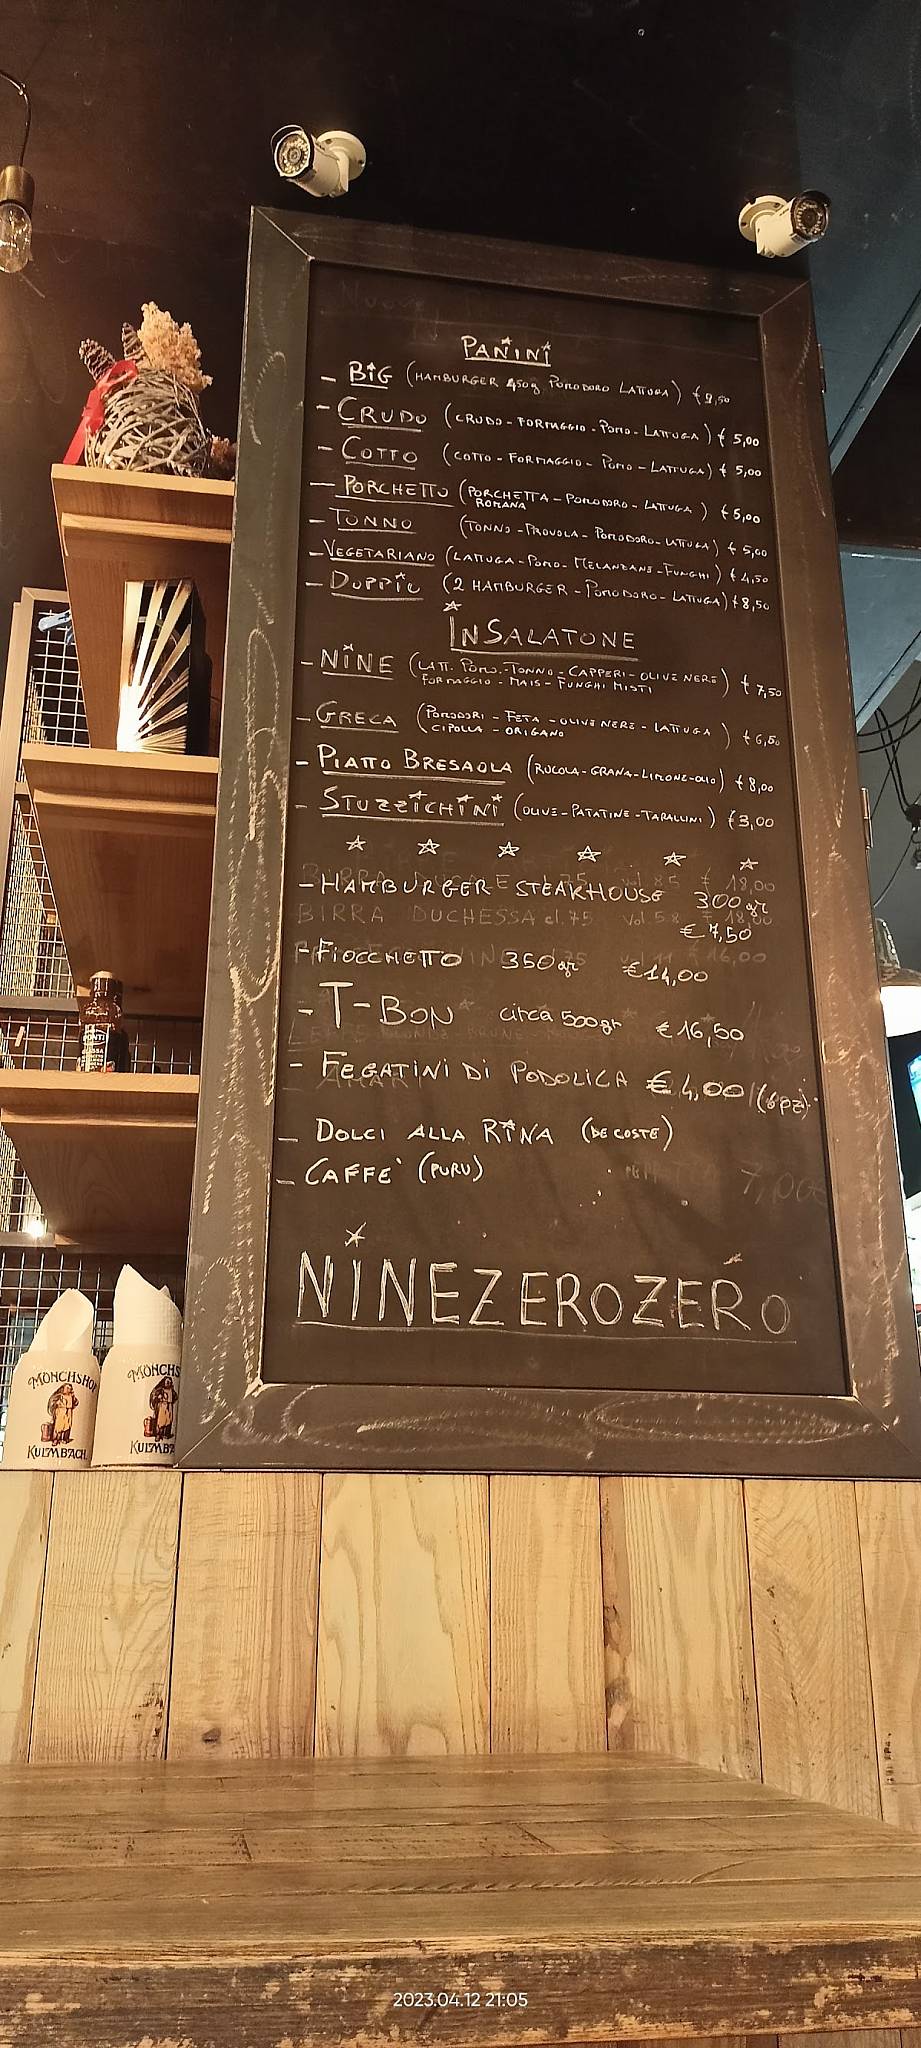 PANINI
- BIG (HAMBURGER 450g POMODORO LATTUGA) €
- CRUDO (CRUDO - FORMAGGIO - POMO - LATTUGA) € 5,00
- COTTO (COTTO - FORMAGGIO - POMO - LATTUGA) € 5,00
- PORCHETTO (PORCHETTA - POMODORO - LATTUGA) € 5,00
ROMANA
- TONNO (TONNO - PROVOLA - POMODORO - LATTUGA) € 5,00
- VEGETARIANO (LATTUGA - POMO - MELANZANE - FUNGHI) € 4,50
- DOPPIO (2 HAMBURGER - POMODORO - LATTUGA) € 8,50
INSALATONE
- NINE (LATT. POMO. - TONNO - CAPPERI - OLIVE NERE) € 7,50
FORMAGGIO - MAIS - FUNGHI MISTI
- GRECA (POMODORI - FETA - OLIVE NERE - LATTUGA) € 6,50
CIPOLLA - ORIGANO
- PIATTO BRESAOLA (RUCOLA - GRANA - LIMONE - OLIO) € 8,00
- STUZZICHINI (OLIVE - PATATINE - TARALLINI) € 3,00
- HAMBURGER STEAKHOUSE 300 gr
€ 7,50
BIRRA DUCHESSA cl.75 vol 5.8 € 18,00
- FIOCCHETTO 350 gr € 14,00
- T-BON circa 500 gr € 16,50
- FEGATINI DI PODOLICA € 4,00 (6 pz)
- DOLCI ALLA RINA (DE COSTE)
- CAFFE' (PURU)
7,00
NINEZEROZERO
MÖNCHSHOF
KULMBACH
MÖNCHS
KULMBA
PONTI
2023.04.12 21:05